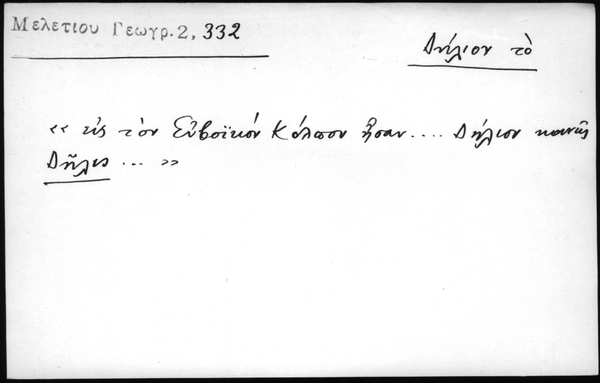 Μελετίου Γεωγρ. 2, 332
Δήλιον τὸ
« εἰς τὸν Εὐβοϊκὸν Κόλπον ἦσαν.... Δήλιον κοινῶς
Δῆλες ... »